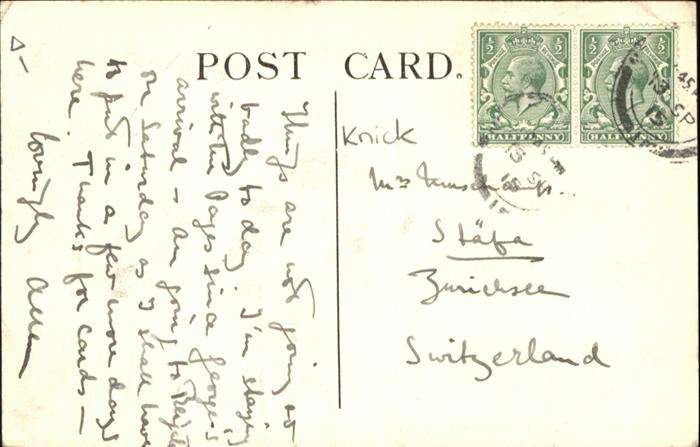 POST CARD.
½ ½
HALFPENNY
½ ½
HALFPENNY
Things are not going so
badly to day I'm staying
with the Pages since George's
arrival – am going to
on Saturday as I shall have
to put in a few more days
here. Thanks for cards –
lovingly
Knick
Mrs
Stäfa
Zürichsee
Switzerland